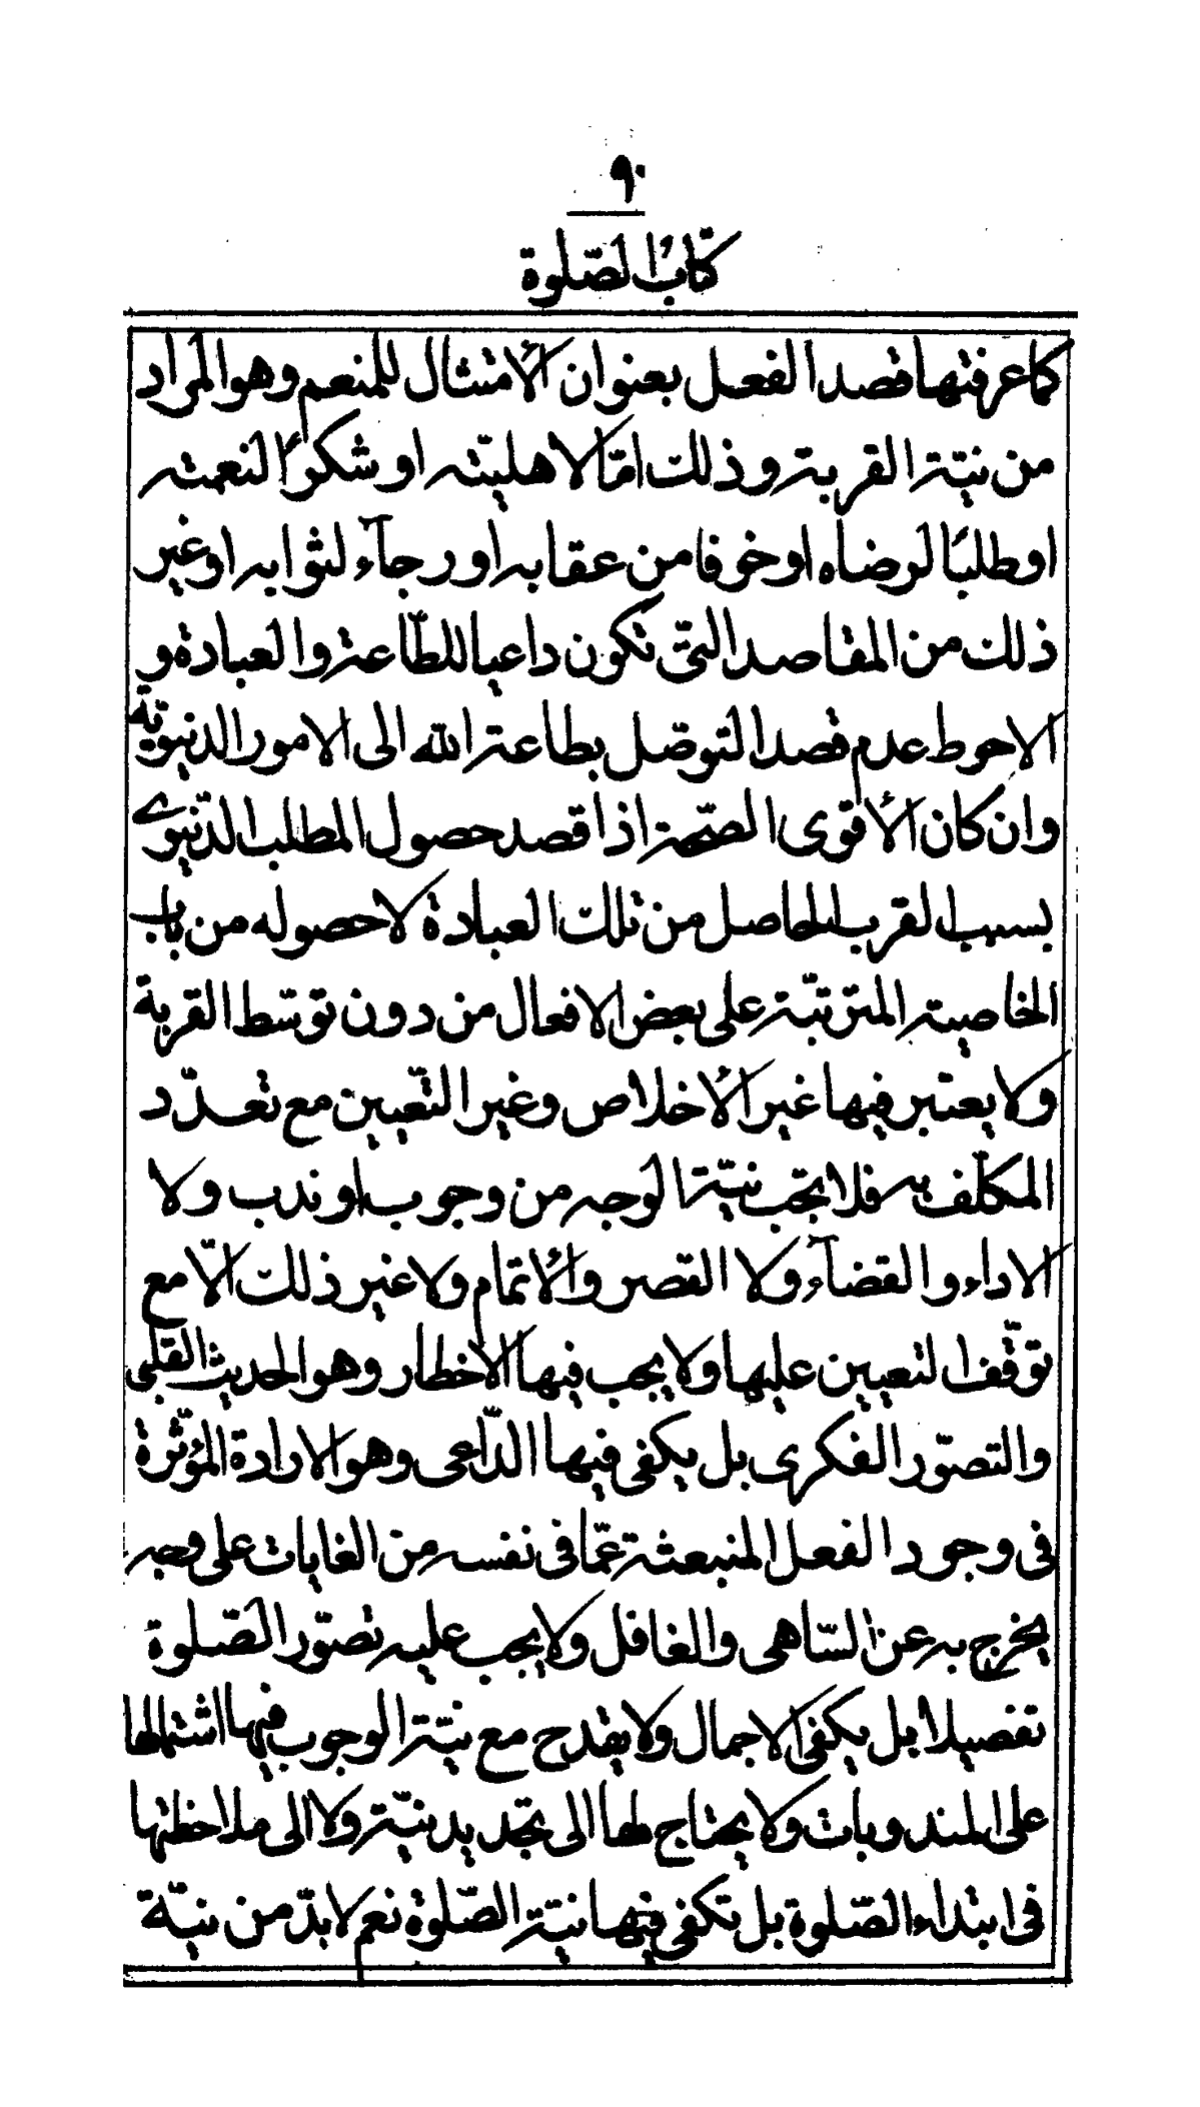 ٩٠
كتابُ الصّلوة
كما عرفتها قصد الفعل بعنوان الأمتثال للمنعم وهو المراد
من نيّة القربة وذلك امّا لاهليّته او شكرًا لنعمته
او طلبًا لرضاه او خوفا من عقابه او رجآء لثوابه او غير
ذلك من المقاصد التى تكون داعيا للطّاعة والعبادة و
الاحوط عدم قصد التوصّل بطاعة اللّه الى الامور الدنيويّة
وان كان الأقوى الصّحة اذا قصد حصول المطلب الدّنيوى
بسبب القرب الحاصل من تلك العبادة لا حصوله من باب
الخاصيّة المترتّبة على بعض الافعال من دون توسّط القربة
ولا يعتبر فيها غير الأخلاص وغير التّعيين مع تعدّد
المكلّف به فلا يجب نيّة الوجه من وجوب او ندب ولا
الاداء والقضآء ولا القصر والأتمام ولا غير ذلك الّا مع
توقّف التعيين عليها ولا يجب فيها الأخطار وهو الحديث القلبى
والتصوّر الفكرى بل يكفى فيها الدّاعى وهو الارادة المؤثّرة
فى وجود الفعل المنبعثة عمّا فى نفسه من الغايات على وجه
يخرج به عن السّاهى والغافل ولا يجب عليه تصوّر الصّلوة
تفصيلا بل يكفى الاجمال ولا يقدح مع نيّة الوجوب فيها اشتمالها
على المندوبات ولا يحتاج لها الى تجديد نيّة ولا الى ملاحظتها
فى ابتداء الصّلوة بل تكفى فيها نيّة الصّلوة نعم لا بدّ من نيّة